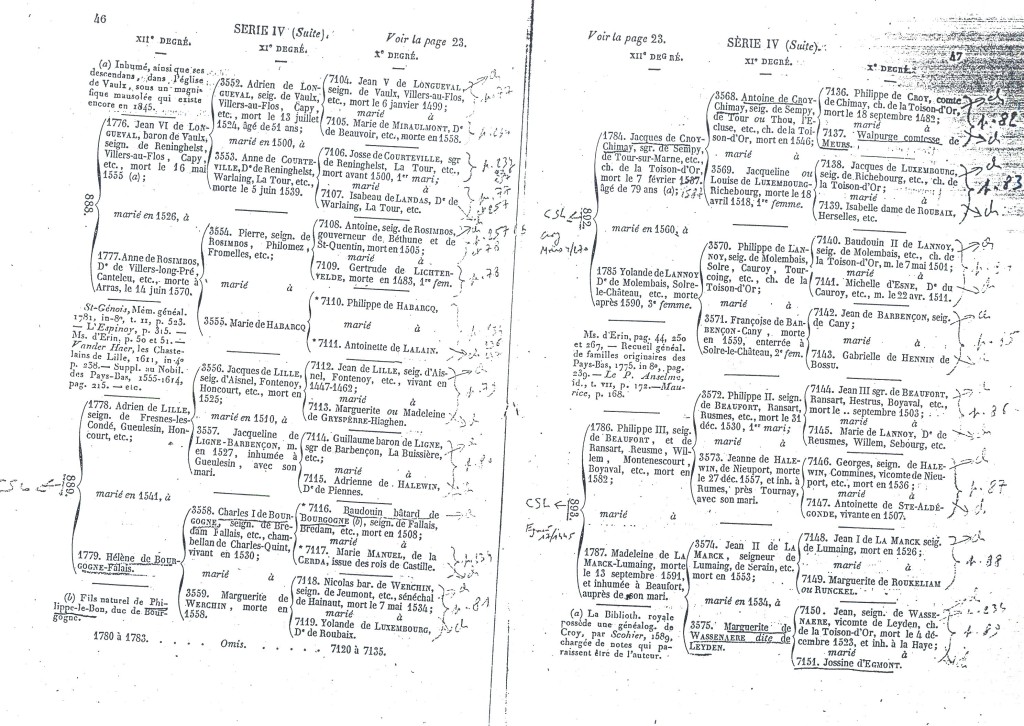 46
SERIE IV (Suite).
Voir la page 23.
XIIe DEGRÉ.
XIe DEGRÉ.
Xe DEGRÉ.
(a) Inhumé, ainsi que ses
descendans, dans l'église
de Vaulx, sous un magni-
fique mausolée qui existe
encore en 1845.
1776. Jean VI de LON-
GUEVAL, baron de Vaulx,
seign. de Reninghelst,
Villers-au-Flos, Capy,
etc., mort le 16 mai
1555 (a);
888.
marié en 1526, à
1777. Anne de ROSIMBOS,
De de Villers-long-Pré,
Canteleu, etc., morte à
Arras, le 14 juin 1570.
St-Génois, Mém. généal.
1781, in-8o, t. II, p. 523.
— L'Espinoy, p. 315. —
Ms. d'Erin, p. 50 et 51. —
Vander Haer, les Chaste-
lains de Lille, 1611, in-4o
p. 238.— Suppl. au Nobil.
des Pays-Bas, 1555-1614,
pag. 215. — etc.
1778. Adrien de LILLE,
seign. de Fresnes-les-
Condé, Gueulesin, Hon-
court, etc.;
889.
marié en 1541, à
1779. Hélène de BOUR-
GOGNE-Falais.
(b) Fils naturel de Phi-
lippe-le-Bon, duc de Bour-
gogne.
1780 à 1783.
3552. Adrien de LON-
GUEVAL, seig. de Vaulx,
Villers-au-Flos, Capy,
etc., mort le 13 juillet
1524, âgé de 51 ans;
marié en 1500, à
3553. Anne de COURTE-
VILLE, De de Reninghelst,
Warlaing, La Tour, etc.,
morte le 5 juin 1539.
3554. Pierre, seign. de
ROSIMBOS, Philomez,
Fromelles, etc.;
marié à
3555. Marie de HABARCQ
3556. Jacques de LILLE,
seig. d'Aisnel, Fontenoy,
Honcourt, etc., mort en
1525;
marié en 1510, à
3557. Jacqueline de
LIGNE-BARBENÇON, m.
en 1527, inhumée à
Gueulesin, avec son
mari.
3558. Charles I de BOUR-
GOGNE, seign. de Bre-
dam Fallais, etc., cham-
bellan de Charles-Quint,
vivant en 1530;
marié à
3559. Marguerite de
WERCHIN, morte en
1558.
Omis.
7104. Jean V de LONGUEVAL
seign. de Vaulx, Villers-au-Flos,
etc., mort le 6 janvier 1499;
marié à
7105. Marie de MIRAULMONT, De
de Beauvoir, etc., morte en 1558.
7106. Josse de COURTEVILLE, sgr
de Reninghelst, La Tour, etc.,
mort avant 1500, 1er mari;
marié à
7107. Isabeau de LANDAS, De de
Warlaing, La Tour, etc.
7108. Antoine, seig. de ROSIMBOS,
gouverneur de Béthune et de
St-Quentin, mort en 1505;
marié à
7109. Gertrude de LICHTER-
VELDE, morte en 1483, 1re fem.
*7110. Philippe de HABARCQ,
marié à
*7111. Antoinette de LALAIN.
7112. Jean de LILLE, seig. d'Ais-
nel, Fontenoy, etc., vivant en
1447-1462;
marié à
7113. Marguerite ou Madeleine
de GRYSPERRE-Hiaghen.
7114. Guillaume baron de LIGNE,
sgr de Barbençon, La Buissière,
etc.;
marié à
7115. Adrienne de HALEWIN,
De de Piennes.
*7116. Baudouin bâtard de
BOURGOGNE (b), seign. de Fallais,
Bredam, etc., mort en 1508;
marié à
*7117. Marie MANUEL, de la
CERDA, issue des rois de Castille.
7118. Nicolas bar. de WERCHIN,
seign. de Jeumont, etc., sénéchal
de Hainaut, mort le 7 mai 1534;
marié à
7119. Yolande de LUXEMBOURG,
De de Roubaix.
7120 à 7135.
Voir la page 23.
SÉRIE IV (Suite).
47
XIIe DEGRÉ.
XIe DEGRÉ.
Xe DEGRÉ.
1784. Jacques de CROY-
Chimay, sgr. de Sempy,
de Tour-sur-Marne, etc.,
ch. de la Toison-d'Or,
mort le 7 février 1587,
âgé de 79 ans (a);
CSL
892.
marié en 1560, à
1785 Yolande de LANNOY
De de Molembais, Solre-
le-Château, etc., morte
après 1590, 3e femme.
Ms. d'Erin, pag. 44, 250
et 267, — Recueil généal.
de familles originaires des
Pays-Bas, 1775. in 8o, pag.
239. — Le P. Anselme,
id., t. VII, p. 172.—Mau-
rice, p. 168.
1786. Philippe III, seign.
de BEAUFORT, et de
Ransart, Reusme, Wil-
lem, Montenescourt,
Boyaval, etc., mort en
1582;
CSL
893.
marié à
1787. Madeleine de LA
MARCK-Lumaing, morte
le 13 septembre 1591,
et inhumée à Beaufort,
auprès de son mari.
(a) La Biblioth. royale
possède une généalog. de
Croy, par Scohier, 1589,
chargée de notes qui pa-
raissent être de l'auteur.
3568. Antoine de CROY-
Chimay, seig. de Sempy,
de Tour ou Thou, l'E-
cluse, etc., ch. de la Toi-
son-d'Or, mort en 1546;
marié à
3569. Jacqueline ou
Louise de LUXEMBOURG-
Richebourg, morte le 18
avril 1518, 1re femme.
3570. Philippe de LAN-
NOY, seig. de Molembais,
Solre, Cauroy, Tour-
coing, etc., ch. de la
Toison-d'Or;
marié à
3571. Françoise de BAR-
BENÇON-Cany, morte
en 1559, enterrée à
Solre-le-Château, 2e fem.
3572. Philippe II. seign.
de BEAUFORT, Ransart,
Rusmes, etc., mort le 31
déc. 1530, 1er mari;
marié à
3573. Jeanne de HALE-
WIN, de Nieuport, morte
le 27 déc. 1557, et inh. à
Rumes, près Tournay,
avec son mari.
3574. Jean II de LA
MARCK, seigneur de
Lumaing, de Serain, etc.
mort en 1553;
marié en 1534, à
3575. Marguerite de
WASSENAERE dite de
LEYDEN.
7136. Philippe de CROY, comte
de Chimay, ch. de la Toison-d'Or,
mort le 18 septembre 1482;
marié à
7137. Walpurge comtesse de
MEURS.
7138. Jacques de LUXEMBOURG,
seig. de Richebourg, etc., ch. de
la Toison-d'Or;
marié à
7139. Isabelle dame de ROUBAIX,
Herselles, etc.
7140. Baudouin II de LANNOY,
seig. de Molembais, etc., ch. de
la Toison-d'Or, m. le 7 mai 1501;
marié à
7141. Michelle d'ESNE, De du
Cauroy, etc., m. le 22 avr. 1511.
7142. Jean de BARBENÇON, seig.
de Cany;
marié à
7143. Gabrielle de HENNIN de
BOSSU.
7144. Jean III sgr. de BEAUFORT,
Ransart, Hestrus, Boyaval, etc.,
mort le .. septembre 1503;
marié à
7145. Marie de LANNOY, De de
Reusmes, Willem, Sebourg, etc.
7146. Georges, seign. de HALE-
WIN, Commines, vicomte de Nieu-
port, etc., mort en 1536;
marié à
7147. Antoinette de STE-ALDÉ-
GONDE, vivante en 1507.
7148. Jean I de LA MARCK seig.
de Lumaing, mort en 1526;
marié à
7149. Marguerite de ROUKELIAM
ou RUNCKEL.
7150. Jean, seign. de WASSE-
NAERE, vicomte de Leyden, ch.
de la Toison-d'Or, mort le 4 dé-
cembre 1523, et inh. à la Haye;
marié à
7151. Jossine d'EGMONT.